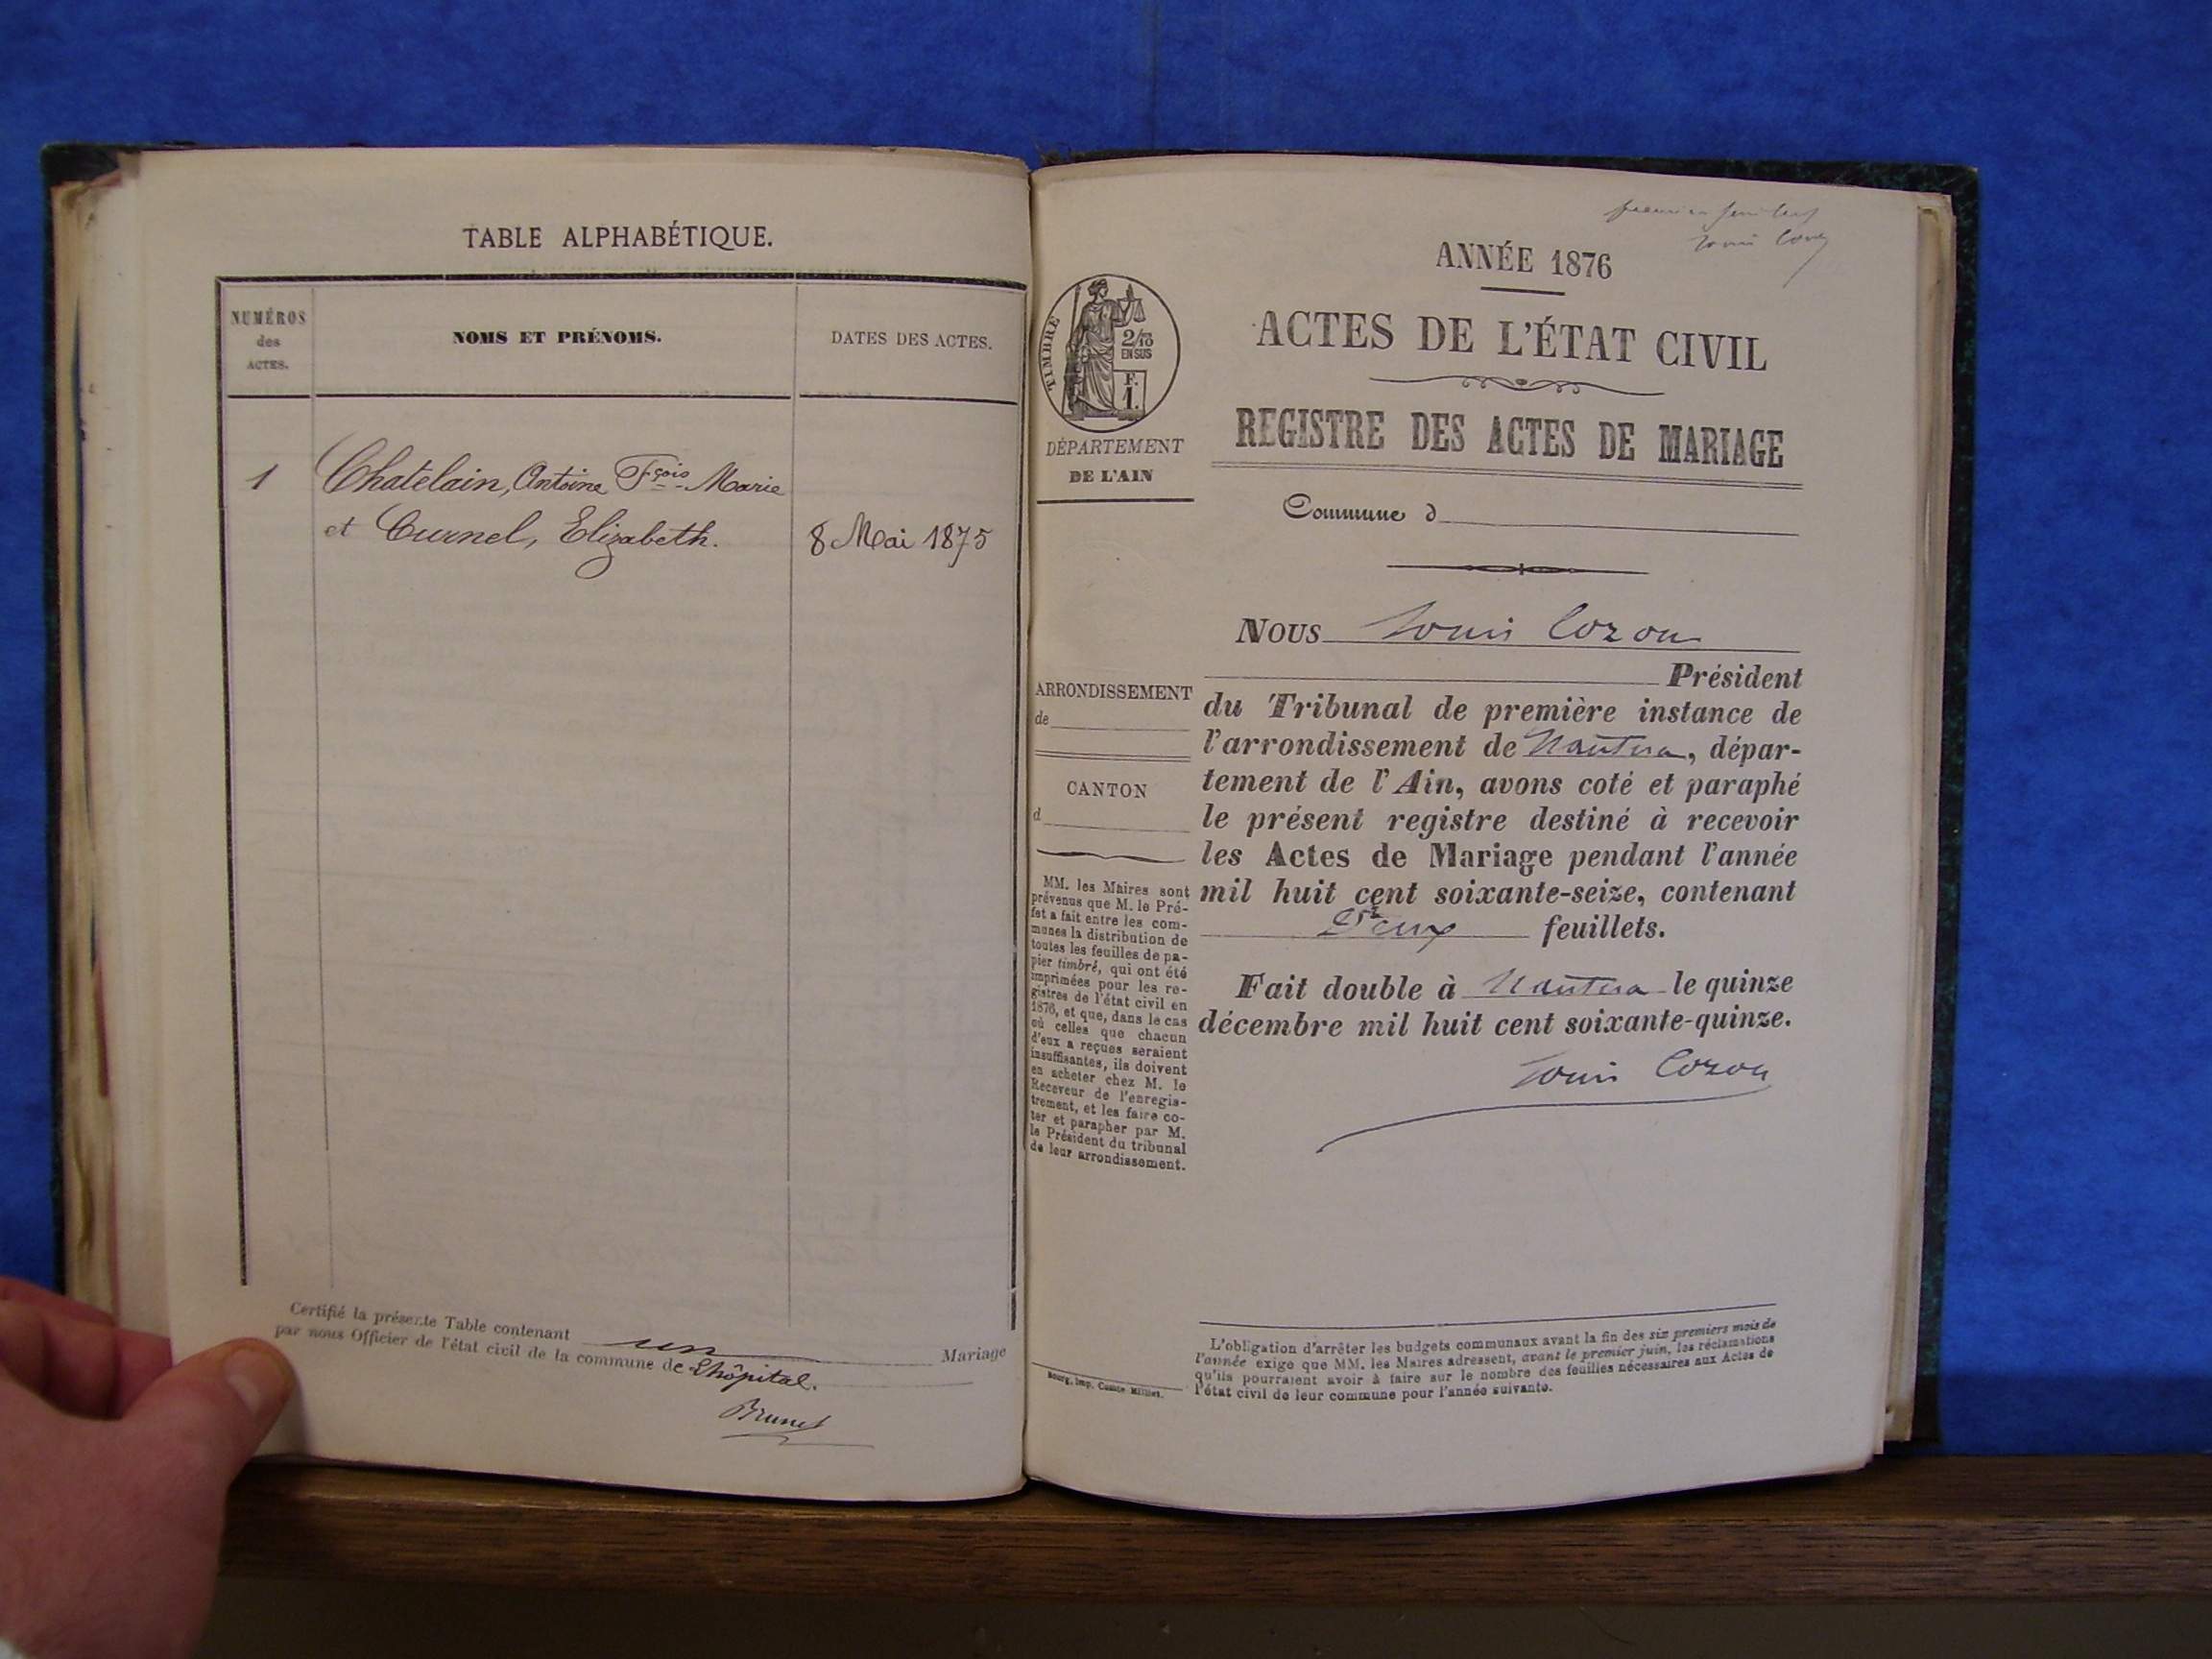 TABLE ALPHABÉTIQUE.
NUMÉROS
des
ACTES.
NOMS ET PRÉNOMS.
DATES DES ACTES.
1
Chatelain, Antoine Fçois Marie
et Curnel, Elizabeth.
8 Mai 1875
Certifié la présente Table contenant un Mariage
par nous Officier de l'état civil de la commune de Lhôpital.
Brunet
premier feuillet
Louis Cozon
ANNÉE 1876
ACTES DE L'ÉTAT CIVIL
REGISTRE DES ACTES DE MARIAGE
TIMBRE
2/10
EN SUS
F.
1.
DÉPARTEMENT
DE L'AIN
Commune d
NOUS Louis Cozon
Président
du Tribunal de première instance de
l'arrondissement de Nantua, dépar-
tement de l'Ain, avons coté et paraphé
le présent registre destiné à recevoir
les Actes de Mariage pendant l'année
mil huit cent soixante-seize, contenant
Deux feuillets.
Fait double à Nantua le quinze
décembre mil huit cent soixante-quinze.
Louis Cozon
ARRONDISSEMENT
de
CANTON
d
MM. les Maires sont
prévenus que M. le Pré-
fet a fait entre les com-
munes la distribution de
toutes les feuilles de pa-
pier timbré, qui ont été
imprimées pour les re-
gistres de l'état civil en
1876, et que, dans le cas
où celles que chacun
d'eux a reçues seraient
insuffisantes, ils doivent
en acheter chez M. le
Receveur de l'enregis-
trement, et les faire co-
ter et parapher par M.
le Président du tribunal
de leur arrondissement.
Bourg, imp. Comte Milliet.
L'obligation d'arrêter les budgets communaux avant la fin des six premiers mois de
l'année exige que MM. les Maires adressent, avant le premier juin, les réclamations
qu'ils pourraient avoir à faire sur le nombre des feuilles nécessaires aux Actes de
l'état civil de leur commune pour l'année suivante.